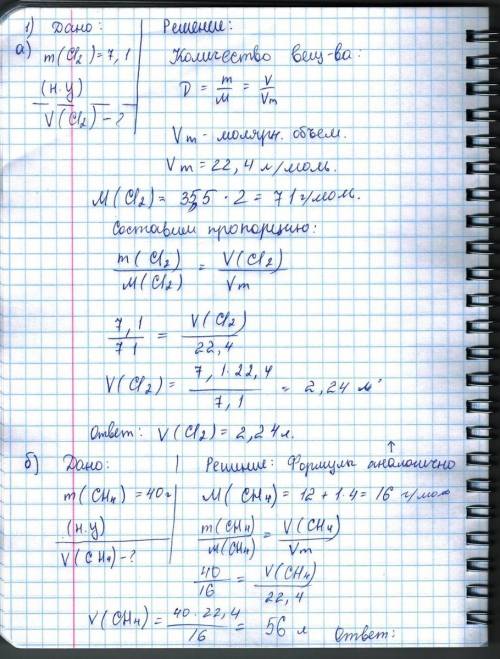 1) Дано: Решение:
а) m(Cl2) = 7,1 Количество вещ-ва:
(н.у) D = m/M = V/Vm
V(Cl2) - ?
Vm - молярн. объем.
Vm = 22,4 л/моль.
M(Cl2) = 35,5 · 2 = 71 г/моль.
Составим пропорцию:
m(Cl2)/M(Cl2) = V(Cl2)/Vm
7,1/71 = V(Cl2)/22,4
V(Cl2) = 7,1·22,4/7,1 = 2,24 л
Ответ: V(Cl2) = 2,24 л.
б) Дано: Решение: Формулы аналогично ↑
m(CH4) = 40 г M(CH4) = 12 + 1·4 = 16 г/моль
(н.у) m(CH4)/M(CH4) = V(CH4)/Vm
V(CH4) - ?
40/16 = V(CH4)/22,4
V(CH4) = 40·22,4/16 = 56 л Ответ: